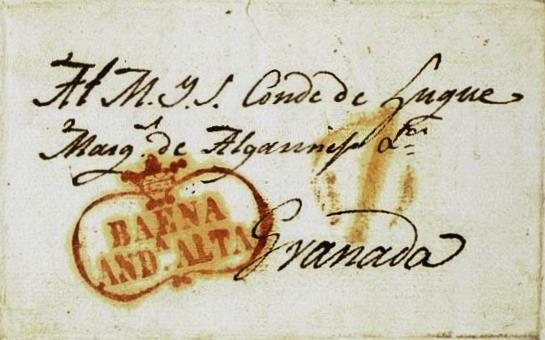 Al M. Y. S. Conde de Luque
Marq.s de Algarinejo &.ra
BAENA
AND. ALTA
Granada